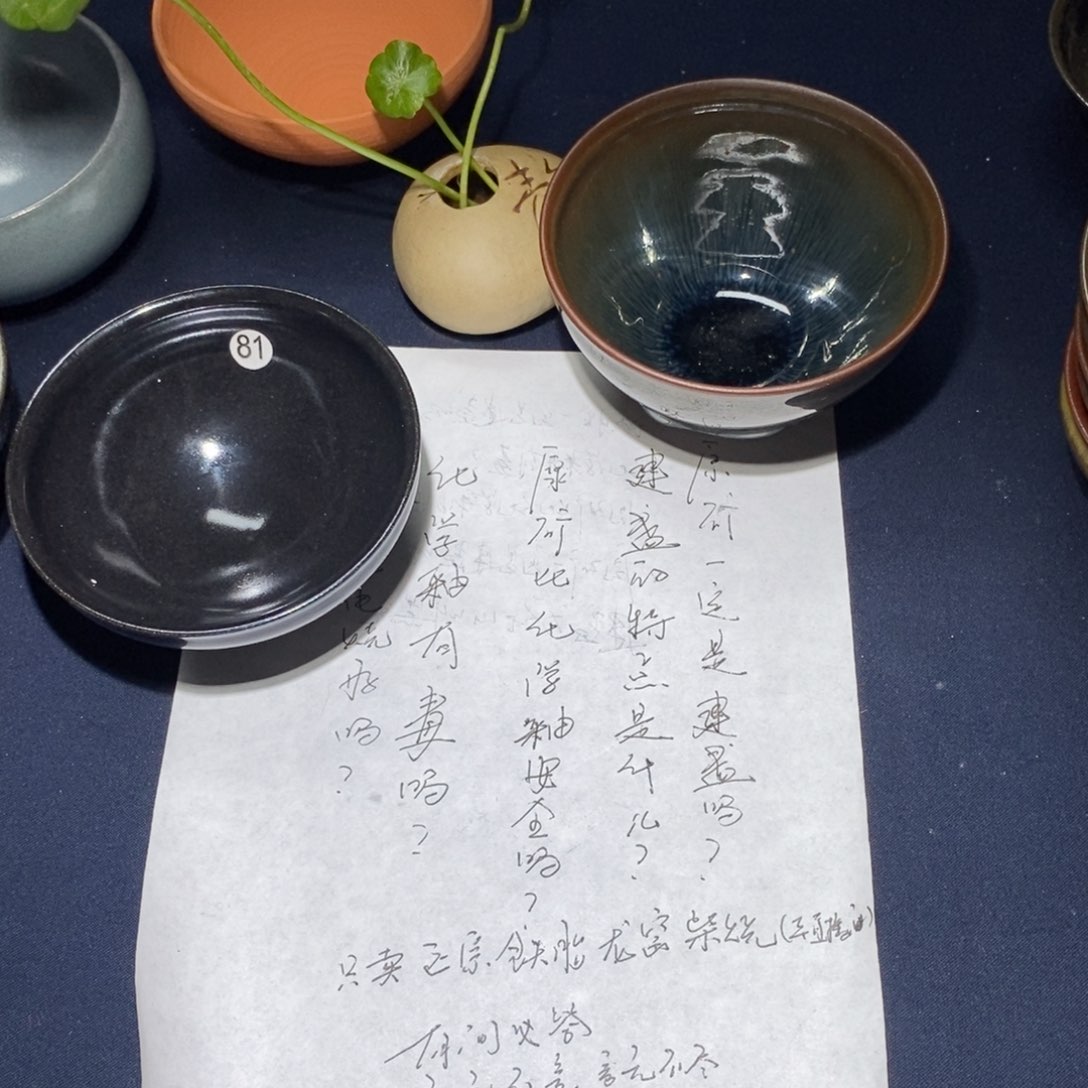 原矿一定是建盏吗?
建盏的特点是什么?
原矿比化学釉安全吗?
化学釉有毒吗?
烧好吗?
只卖正宗鉄胎龙窑柴烧
有问必答
言无不尽
81